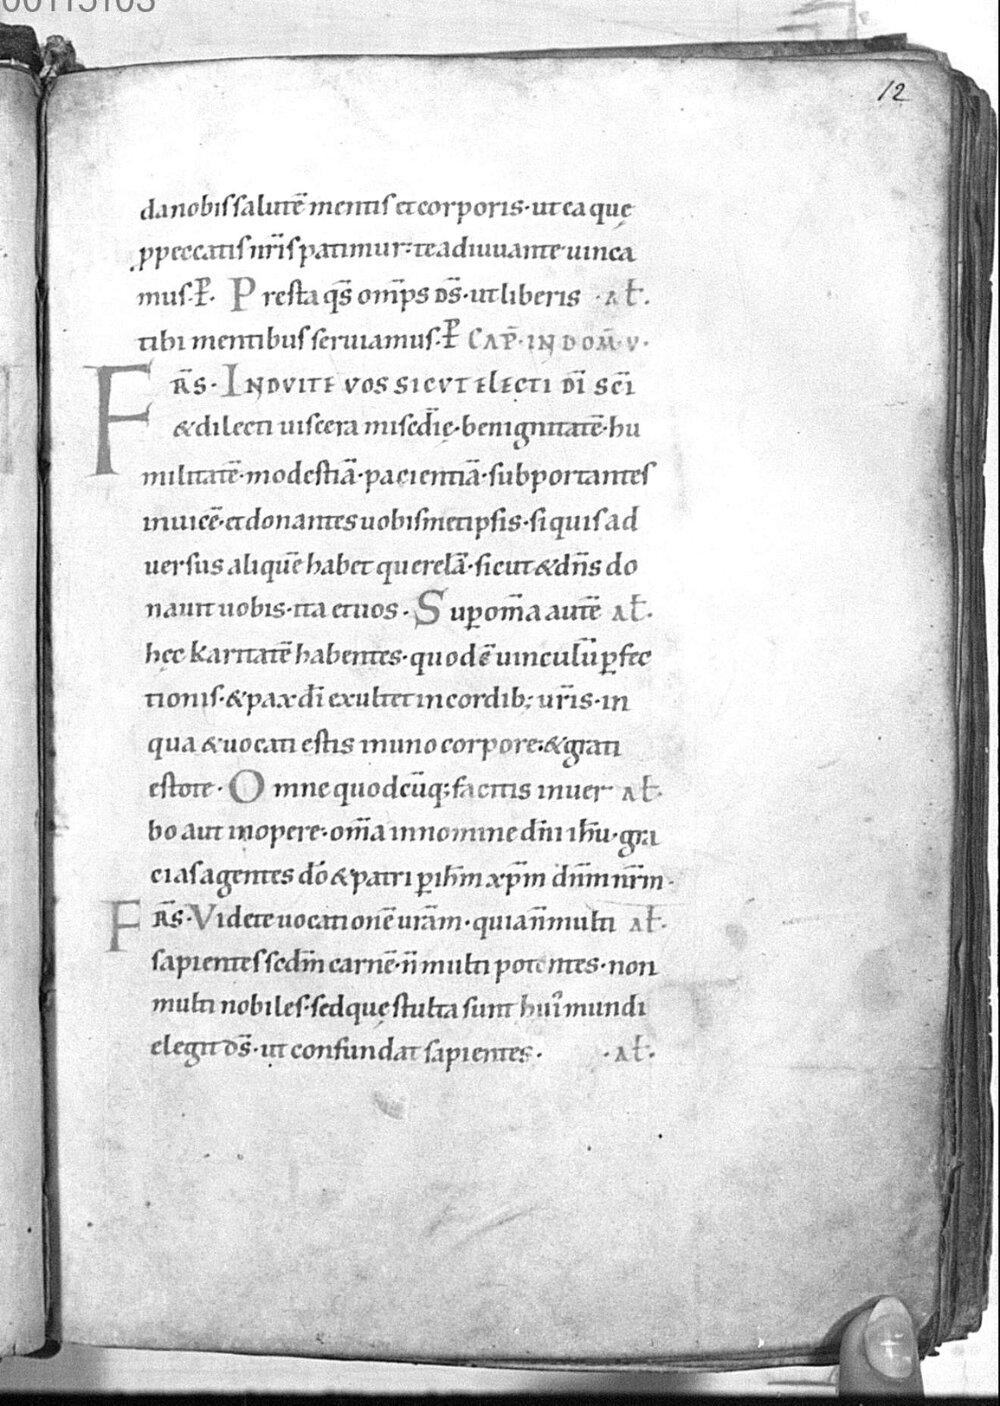 00115103
12
da nobis salutē mentis et corporis· ut ea que
p peccatis nr̄is patimur· te adiuuante uinca
mus· P̄. Presta qs̄ om̄ps ds̄· ut liberis ·aƚ.
tibi mentibus seruiamus· P̄ CAP̄· IN DOM̄· V·
FRS̄· INDVITE VOS SICVT ELECTI DĪ SCĪ
& dilecti uiscera misedīe· benignitatē· hu
militatē· modestiā· pacientiā· subportantes
inuicē· et donantes uobismetipsis· si quis ad
uersus aliquē habet querelā· sicut & dn̄s do
nauit uobis· ita et uos· Sup om̄a autē aƚ.
hec karitatē habentes· quod ē uinculū pfec
tionis· & pax dī exultet in cordib; ur̄is· in
qua & uocati estis in uno corpore· & grati
estote· Omne quodcūq; facitis in uer aƚ·
bo aut in opere· om̄a in nomine dn̄i ih̄u· gra
cias agentes dō & patri p ih̄m xp̄m dn̄m nr̄m·
FRS̄· Videte uocationē urām· quia n̄ multi aƚ·
sapientes sedm̄ carnē· n̄ multi potentes· non
multi nobiles· sed que stulta sunt hui mundi
elegit ds̄· ut confundat sapientes· ·aƚ·